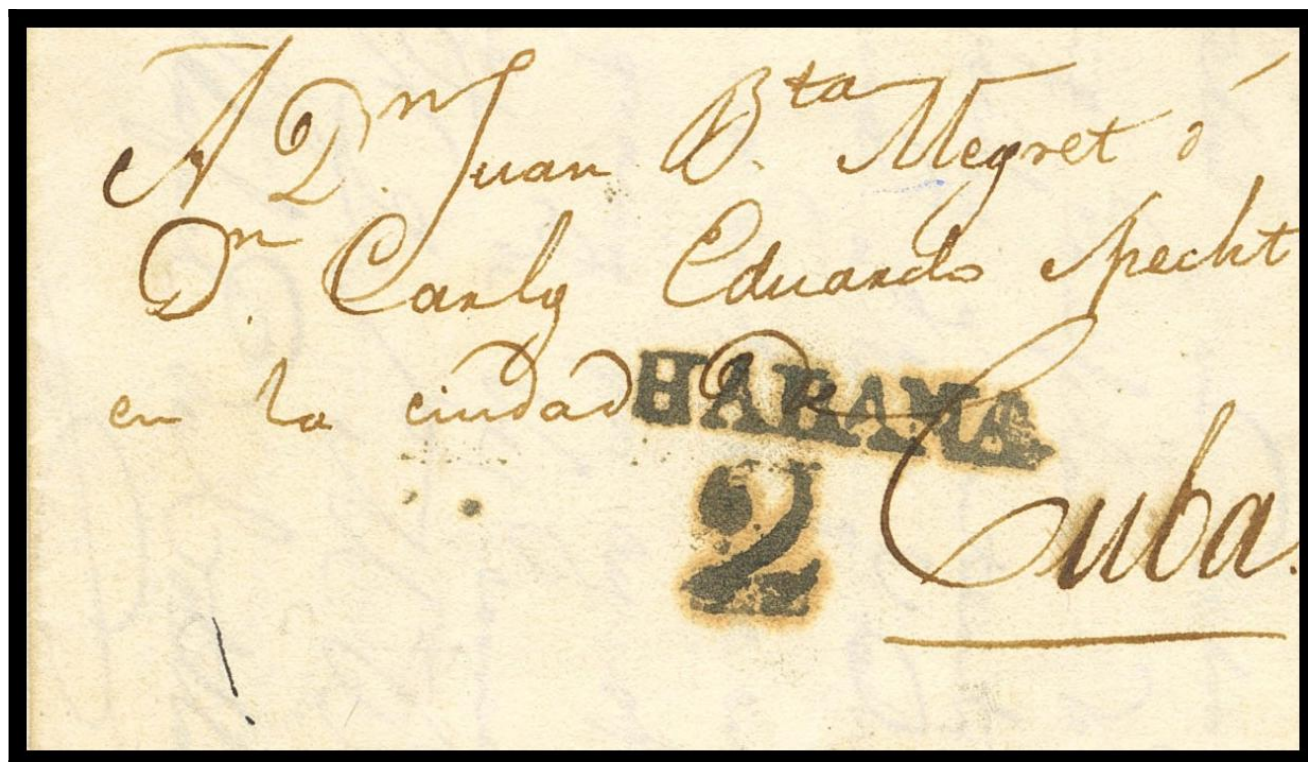 A Dn. Juan Bta. Megret ó
Dn. Carlos Eduardo Specht
en la ciudad De Cuba.
HABANA
2